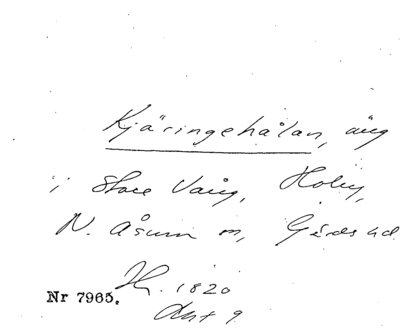 Kjäringehålan, äng
i Store Vång, Holby,
N. Åsum sn, Gärds hd
H. 1820
Akt 9
Nr 7965.